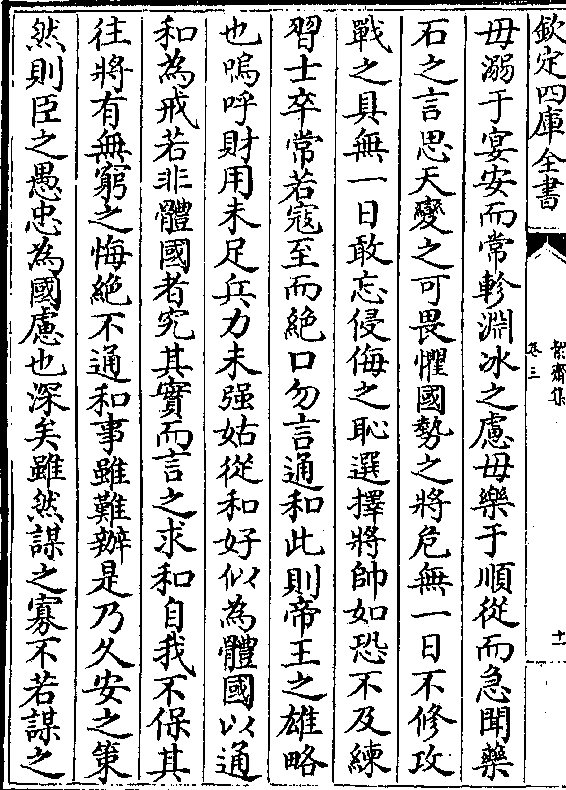 欽定四庫全書
絜齋集
卷三
十一
毋溺于宴安而常軫淵冰之慮毋樂于順從而急聞藥
石之言思天變之可畏懼國勢之將危無一日不修攻
戰之具無一日敢忘侵侮之恥選擇將帥如恐不及練
習士卒常若寇至而絶口勿言通和此則帝王之雄略
也嗚呼財用未足兵力未强姑從和好似為體國以通
和為戒若非體國者究其實而言之求和自我不保其
往將有無窮之悔絶不通和事雖難辦是乃久安之策
然則臣之愚忠為國慮也深矣雖然謀之寡不若謀之